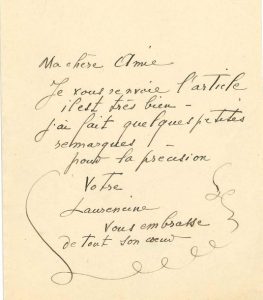 Ma chère Amie
Je vous renvoie l'article
il est très bien –
j'ai fait quelques petites
remarques –
pour la précision
Votre
Laurencine
Vous embrasse
de tout son cœur